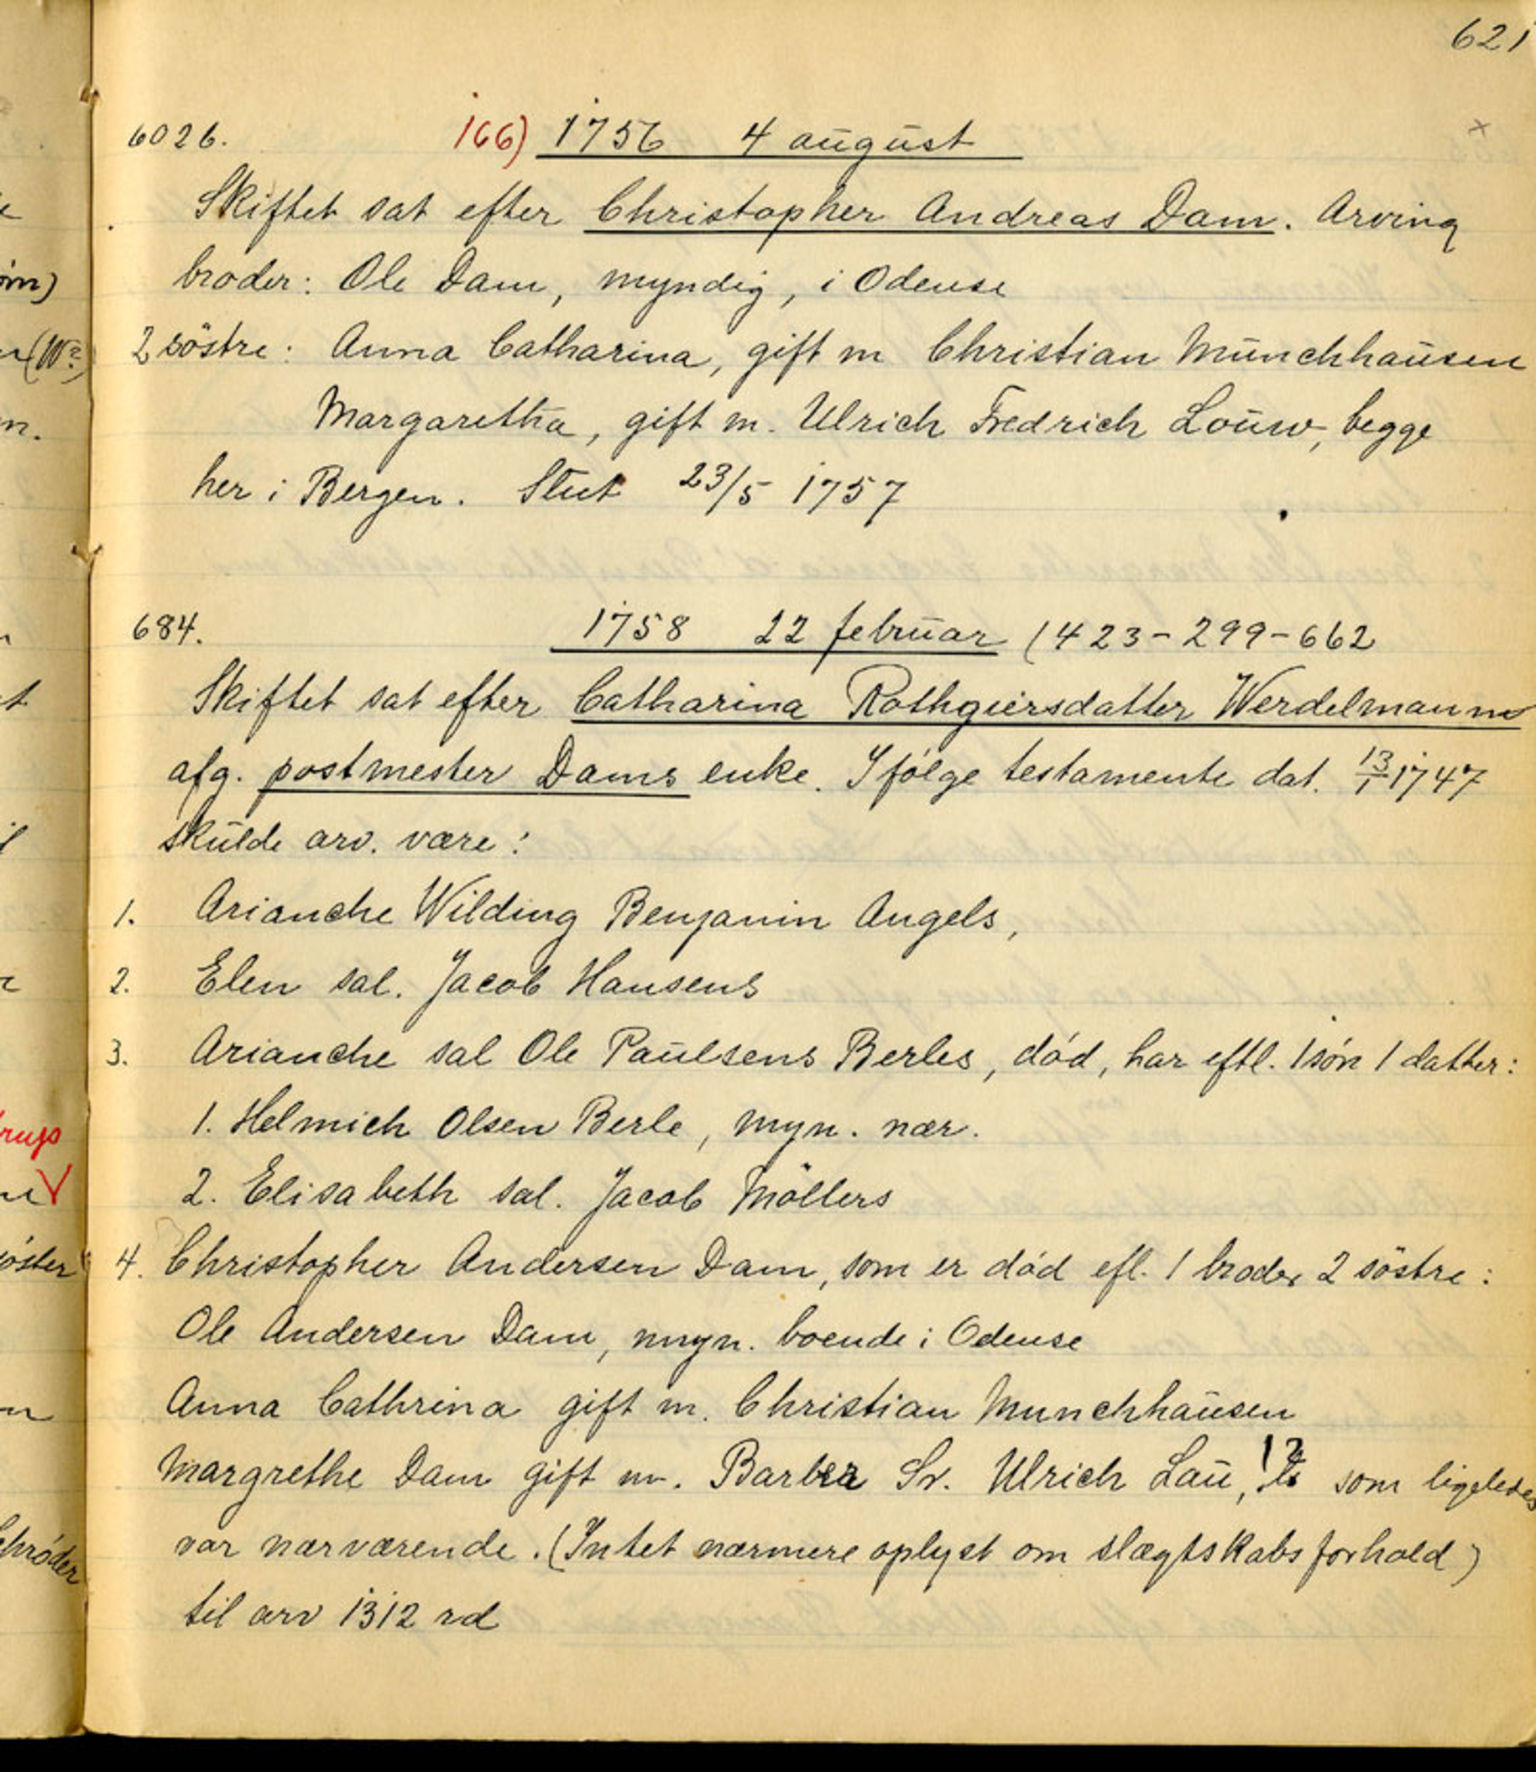 621
6026. 166) 1756 4 august
Skiftet sat efter Christopher Andreas Dam. Arving
broder: Ole Dam, myndig, i Odense
2 söstre: Anna Catharina, gift m Christian Munchhausen
Margaretha, gift m. Ulrich Fredrich Louw, begge
her i Bergen. Slut 23/5 1757
684. 1758 22 februar (423-299-662
Skiftet sat efter Catharina Rothgiersdatter Werdelmanns
afg. postmester Dams enke. Ifølge testamente dat. 13/1 1747
skulde arv. være:
1. Arianche Wilding Benjamin Angels,
2. Elen sal. Jacob Hansens
3. Arianche sal Ole Paulsens Berles, död, har eftl. 1 sön 1 datter:
1. Helmich Olsen Berle, myn. nær.
2. Elisabeth sal. Jacob Möllers
4. Christopher Andersen Dam, som er död efl. 1 broder 2 söstre:
Ole Andersen Dam, myn. boende i Odense
Anna Cathrina gift m. Christian Munchhausen
Margrethe Dam gift m. Barber Sr. Ulrich Lau, !? som ligeledes
var nærværende. (Intet nærmere oplyst om slægtskabsforhold)
til arv 1312 rd